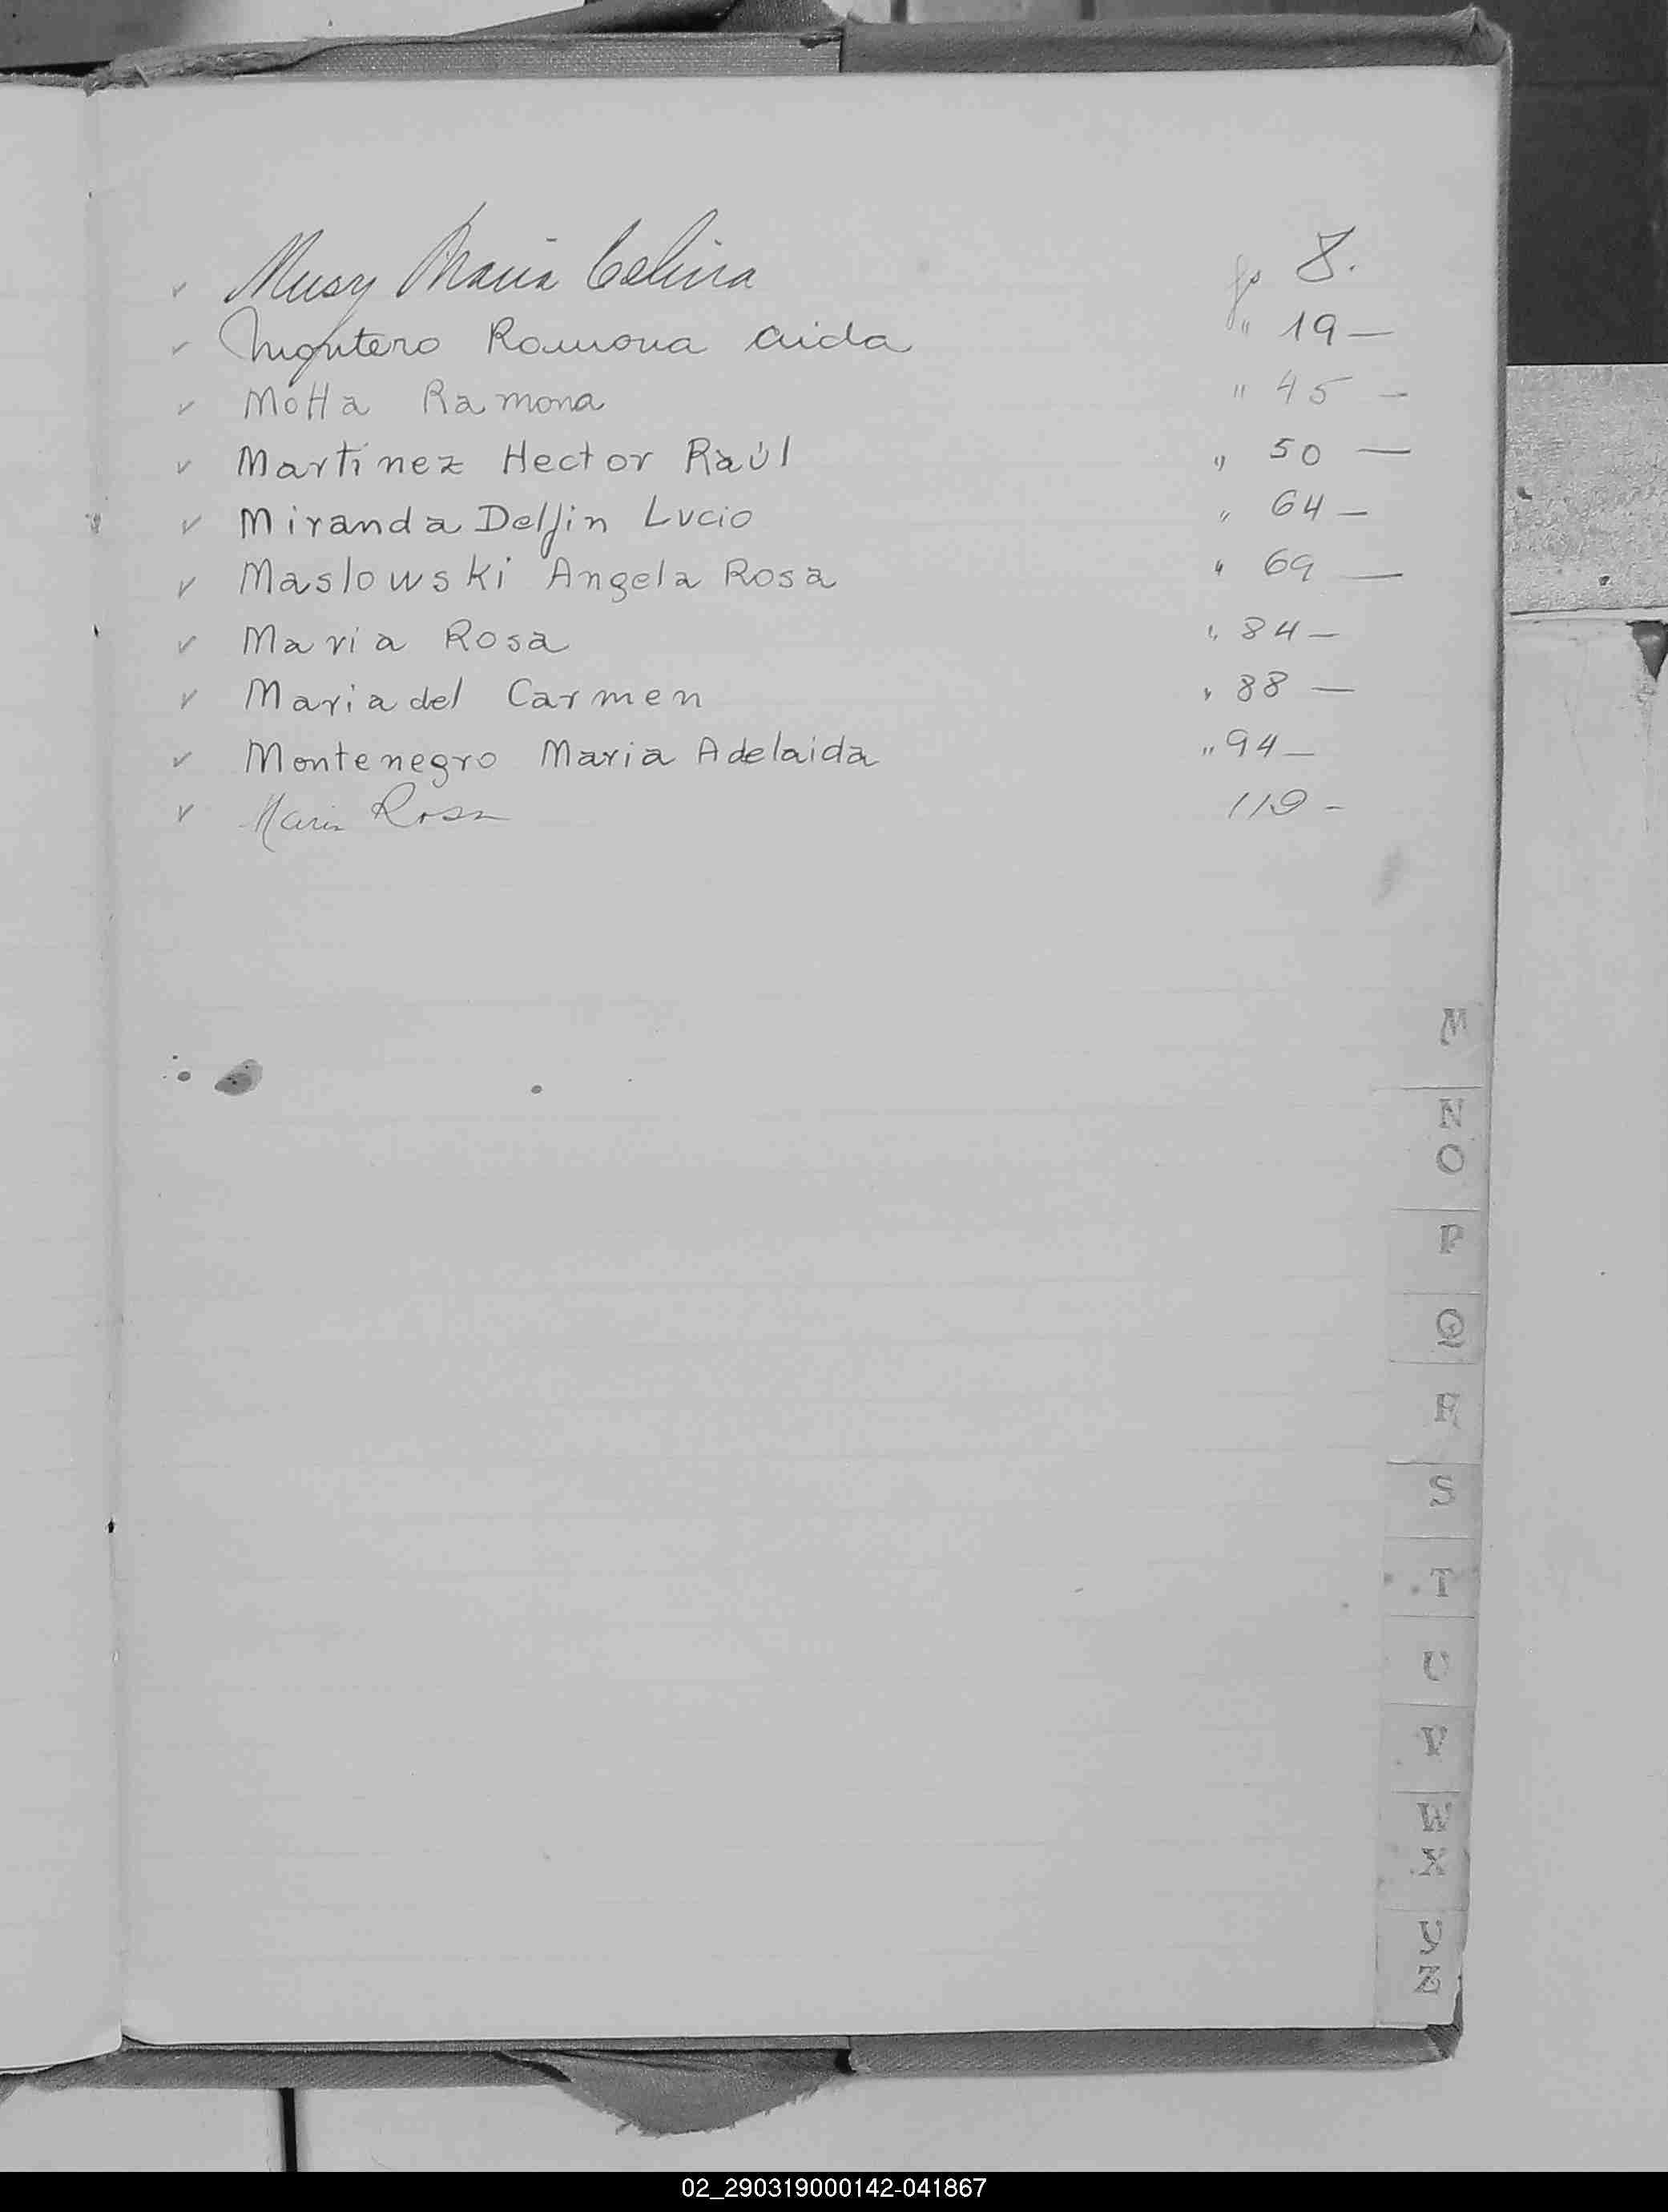 ✓ Musy Maria Celina fs 8.
✓ Montero Ramona Aida " 19 —
✓ Motta Ramona " 45 —
✓ Martinez Hector Raúl " 50 —
✓ Miranda Delfin Lucio " 64 —
✓ Maslowski Angela Rosa " 69 —
✓ Maria Rosa " 84 —
✓ Maria del Carmen " 88 —
✓ Montenegro Maria Adelaida " 94 —
✓ Maria Rosa 119 -
M
N
O
P
Q
R
S
T
U
V
W
X
Y
Z
02_290319000142-041867